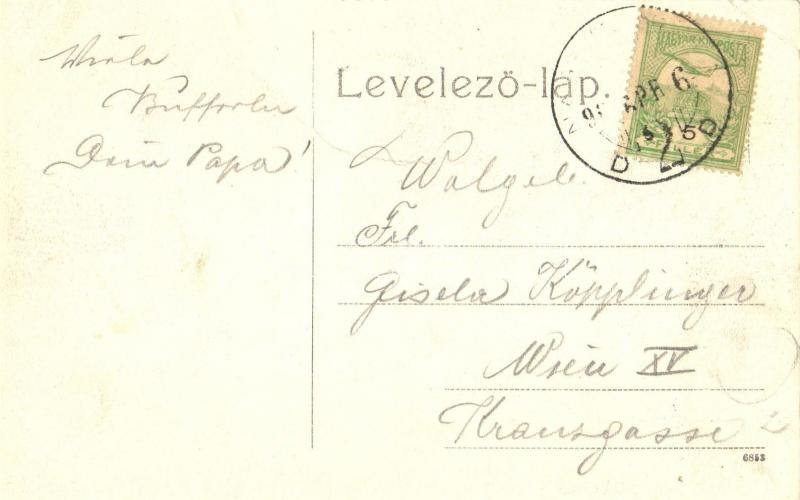 Viele
Bufferln
Dein Papa!
Levelező-lap.
MAGYAR KIR. POSTA
APR 6
5
Wolgeb.
Frl.
Gisela Köpplinger
Wien XV
Kranzgasse 2
6853